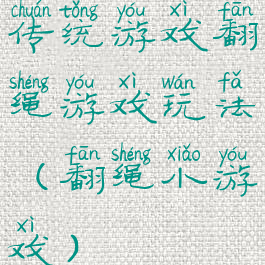 chuán tǒng yóu xì fān
传统游戏翻
shéng yóu xì wán fǎ
绳游戏玩法
fān shéng xiǎo yóu
（翻绳小游
xì
戏）